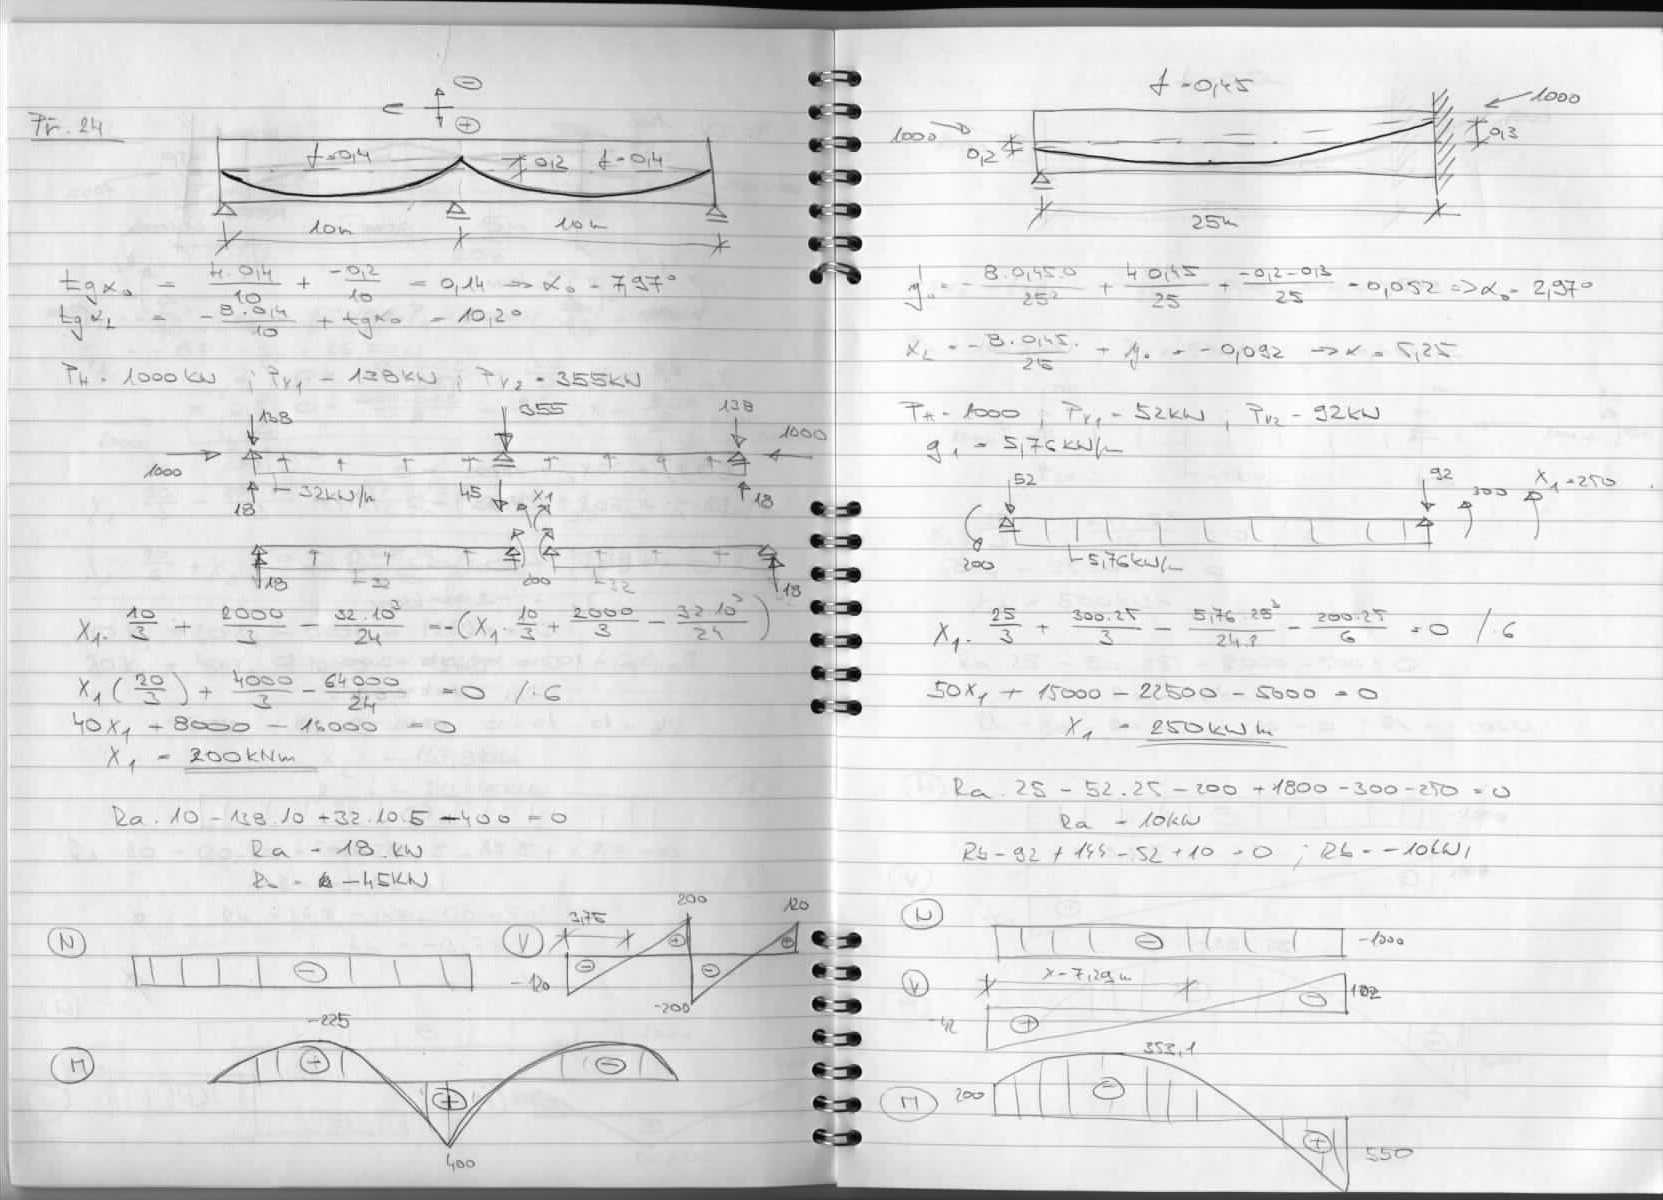 Př. 24
⊖
⊕
f=0,4
0,2
f=0,4
10m
10m
tgα₀ = 4·0,4/10 + -0,2/10 = 0,14 => α₀ = 7,97°
tgα_L = -8·0,4/10 + tgα₀ = 10,2°
P_H = 1000kN ; P_V1 = 138kN ; P_V2 = 355kN
138
355
138
1000
1000
32kN/m
45
X₁
18
18
18
32
200
32
18
X₁·10/3 + 2000/3 - 32·10³/24 = -(X₁·10/3 + 2000/3 - 32·10³/24)
X₁(20/3) + 4000/3 - 64000/24 = 0 /·6
40X₁ + 8000 - 16000 = 0
X₁ = 200kNm
Ra·10 - 138·10 + 32·10·5 - 400 = 0
Ra = 18 kN
R = -45kN
N
⊖
V
3,75
200
120
⊖
⊕
⊖
⊕
-120
-200
M
-225
⊕
⊕
⊖
400
f=0,45
1000
1000
0,2
0,3
25m
y₀' = -8·0,45·0/25² + 4·0,45/25 + -0,2-0,3/25 = 0,052 => α₀ = 2,97°
α_L = -8·0,45·/25 + y₀ = -0,092 => α = 5,25
P_H = 1000 ; P_V1 = 52kN ; P_V2 = 92kN
g₁ = 5,76kN/m
52
92
300
X₁=250
200
5,76kN/m
X₁·25/3 + 300·25/3 - 5,76·25³/24·2 - 200·25/6 = 0 /·6
50X₁ + 15000 - 22500 - 5000 = 0
X₁ = 250kNm
Ra·25 - 52·25 - 200 + 1800 - 300 - 250 = 0
Ra = 10kN
Rb - 92 + 144 - 52 + 10 = 0 ; Rb = -10kN
N
⊖
-1000
V
x=7,29m
-42
⊕
⊖
102
M
353,1
200
⊖
⊕
550